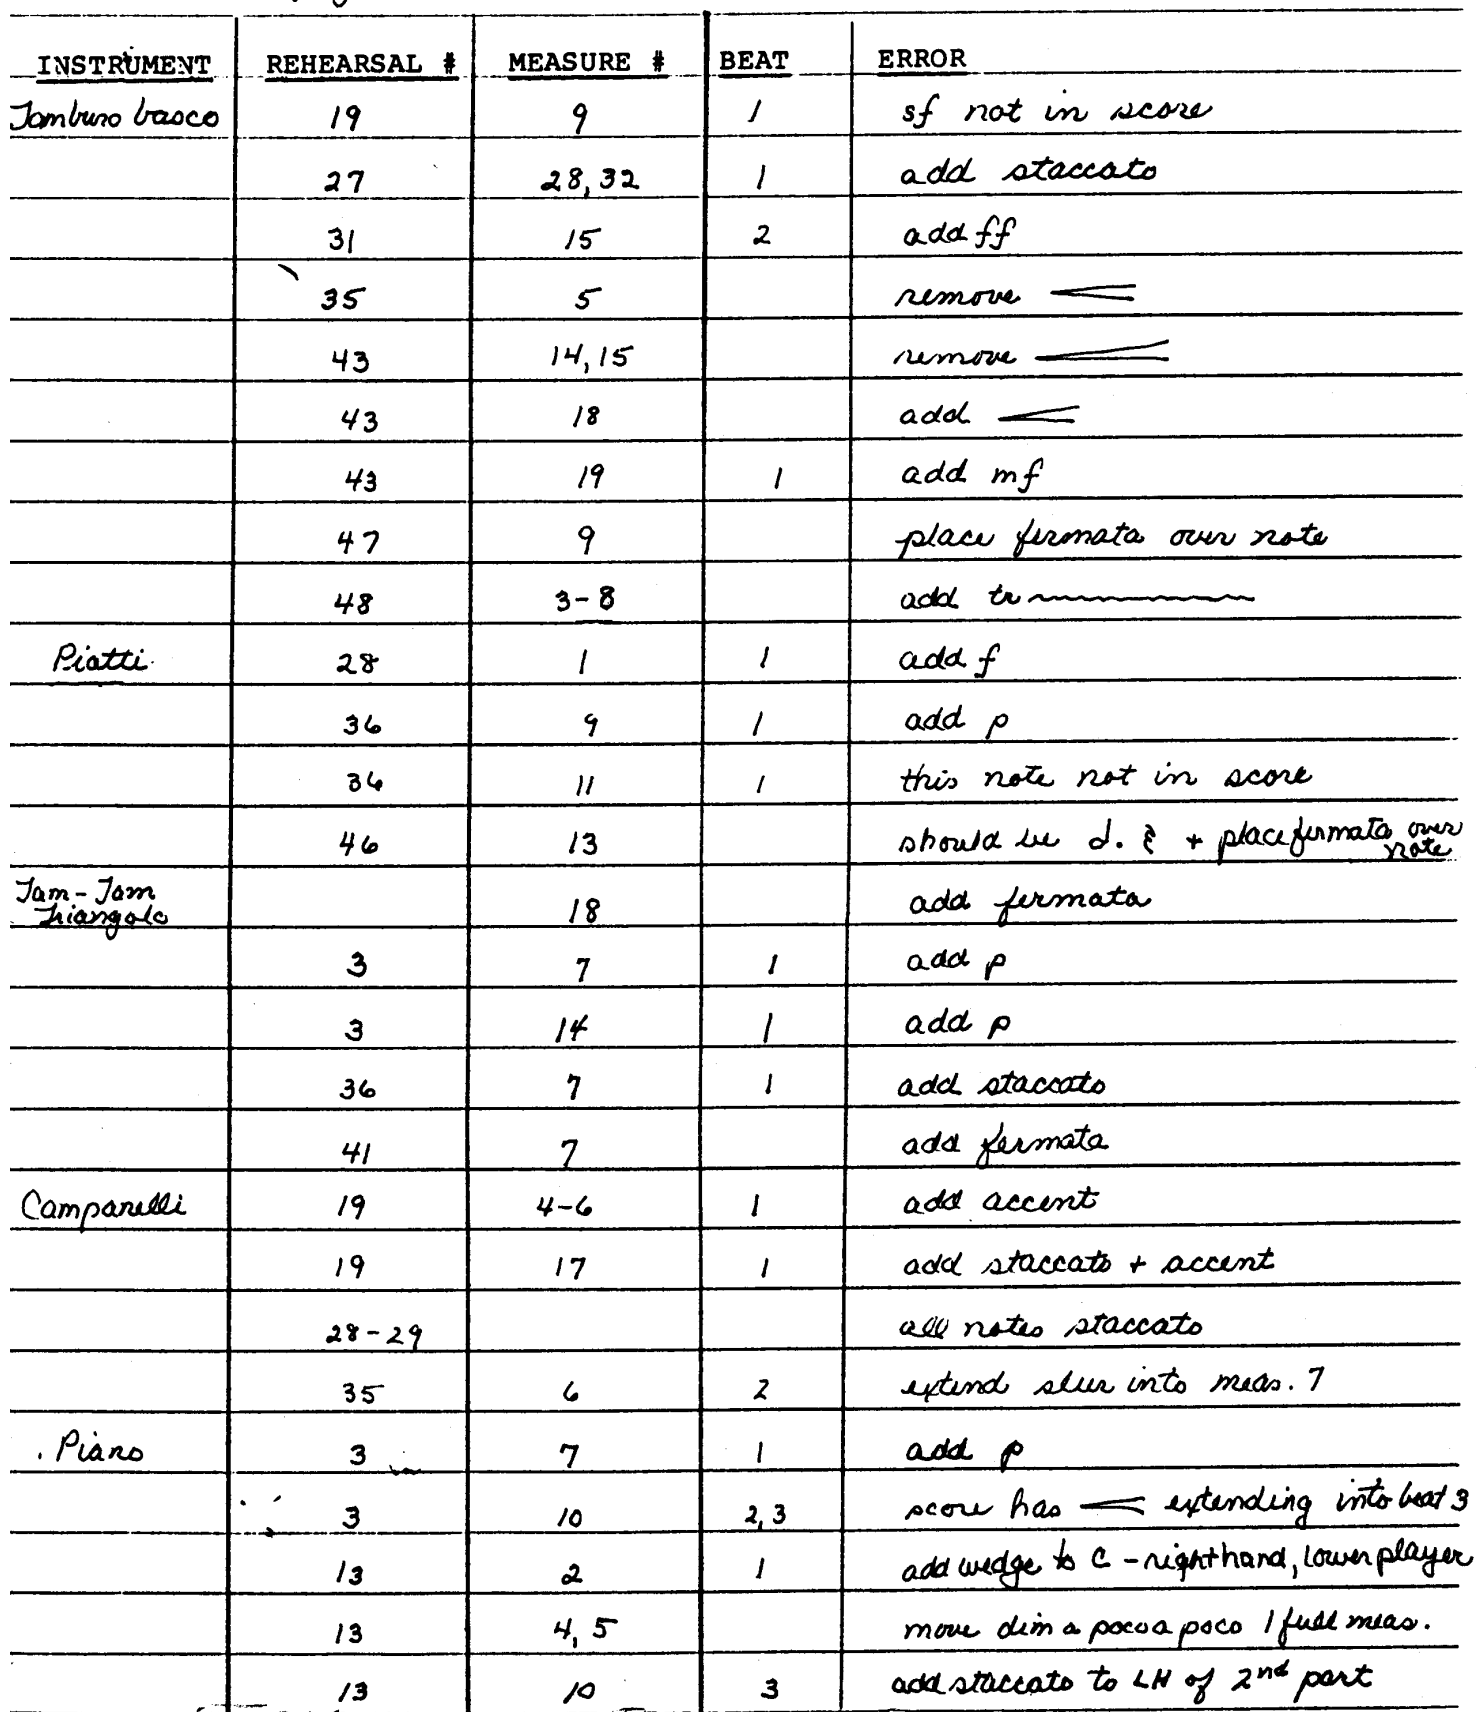 INSTRUMENT REHEARSAL # MEASURE # BEAT ERROR
Tamburo basco 19 9 1 sf not in score
27 28, 32 1 add staccato
31 15 2 add ff
35 5 remove
43 14, 15 remove
43 18 add
43 19 1 add mf
47 9 place fermata over note
48 3-8 add tr
Piatti 28 1 1 add f
36 9 1 add p
36 11 1 this note not in score
46 13 should be d. + place fermata over note
Tam-Tam
Triangolo 18 add fermata
3 7 1 add p
3 14 1 add p
36 7 1 add staccato
41 7 add fermata
Campanelli 19 4-6 1 add accent
19 17 1 add staccato + accent
28-29 all notes staccato
35 6 2 extend slur into meas. 7
Piano 3 7 1 add p
3 10 2, 3 score has extending into beat 3
13 2 1 add wedge to C - right hand, lower player
13 4, 5 move dim a poco a poco 1 full meas.
13 10 3 add staccato to LH of 2nd part